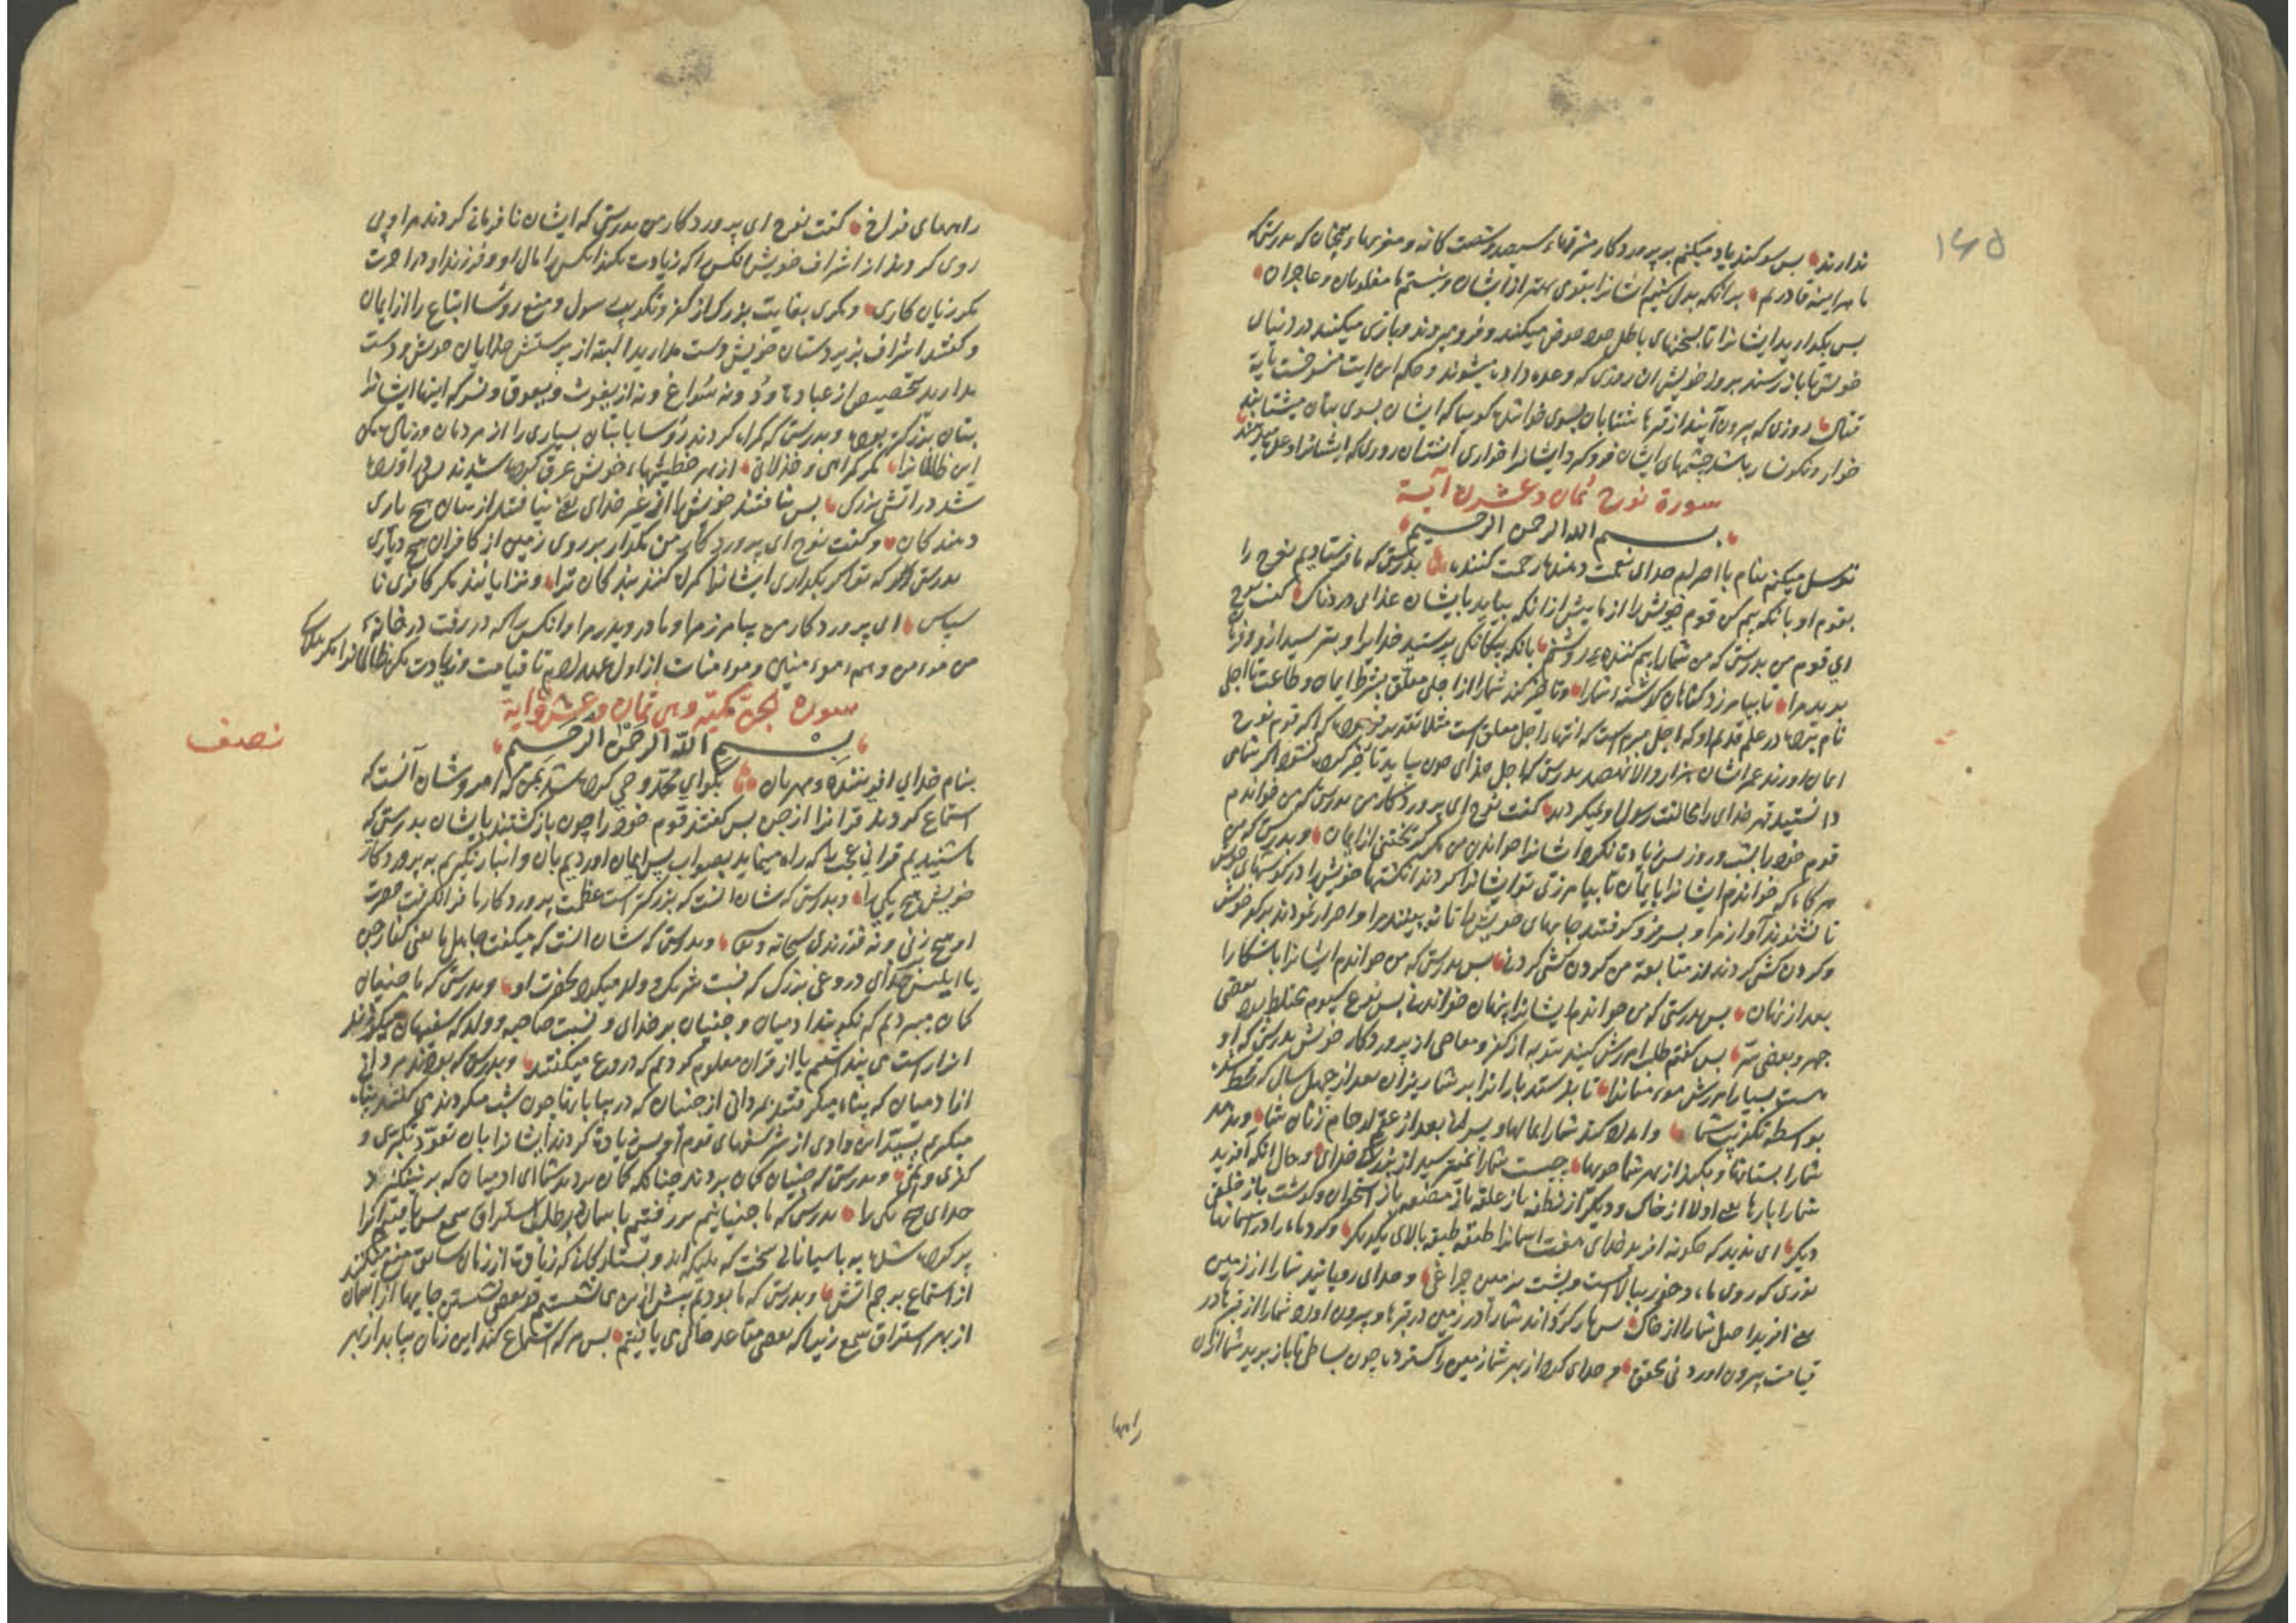 ۱۶۵
ندارند بس سوکند یاد میکنم به پروردکار مشرقهاء سیصد و شصت کانه و مغربهاء همچنان که بدرستی که
ما هراینه قادریم برانکه بدل کنیم ایشانرا بقوی بهتر از ایشان و نیستیم ما مغلوبان و عاجزان
بس بکدارید ایشانرا تا بسخنهای باطل خوض میکنند و فرو میروند و بازی میکنند در دنیاء
خویش تا باز رسند بروز خویش ان روزی که وعده داده میشوند و حکم این ایت منسوخست بایة
قتال روزی که بیرون آیند از قبرها شتابان بسوی خوانندها کوییا که ایشان بسوی بتان میشتابند
خوار و نکونسار باشد چشمهای ایشان فروکیرد ایشانرا خواری آنستان روزی که ایشانرا وعده
سورة نوح ثمان و عشرون آیة
بسم الله الرحمن الرحیم
توسل میکنم بنام با احترام خدای نعمت دهنده رحمت کننده بدرستی که ما فرستادیم نوح را
بقوم او بانکه بیم کن قوم خویش را از ما پیش از انکه بیاید بایشان عذابی دردناک کفت نوح
ای قوم من بدرستی که من شما را بیم کننده روشنم بانکه بیکانکی پرستید خدایرا و بترسید ازو و فرمان
برید مرا تا بیامرزد کناهان کوشته شمارا و تا خیر کند شما را از اجلی معلق بشرط ایمان و طاعت تا اجلی
نام برده در علم قدیم او که اجل مبرم است که انتهاء اجل معلق است مثلا تقدیر فرموده که اکر قوم نوح
ایمان اورند عمر ایشان هزار و الا نهصد بدرستی که اجل خدای چون بیاید تا خیر کرده نشود اکر شما می
دانستید قهر خدای را مخالفت رسول او نمیکردید کفت نوح ای پروردکار من بدرستی که من خواندم
قوم خود را بشب و روز پس زیادت نکرد ایشانرا خواندن من مکر کریختنی از ایمان و بدرستی که من
هر کاه که خواندم ایشانرا بایمان تا بیامرزی تو ایشانرا کردند انکشتهاء خویش را در کوشهای خویش
تا نشنوند آواز مرا و بسر فرو کرفتند جامهای خویش را تا نه بینند مرا و اصرار نمودند بر کفر خویش
و کردن کشی کردند از متابعة من کردن کشی کردنی بس بدرستی که من خواندم ایشانرا باشکارا
بعد از نهان بس بدرستی که من خواندم ایشانرا پنهان خواندنی بس نوع سیوم مختلط بود بعضی
جهر و بعضی سر بس کفتم طلب امرزش کنید بتوبه از کفر و معاصی از پروردکار خویش بدرستی که او
هست بسیار امرزش مومنانرا تا بفرستد بارانرا بر شما ریزان بعد از چهل سال که قحط شد
بواسطه تکذیب شما و امداد کند شما را بمالها و پسرانها بعد از عقم ارحام زنان شما و بدهد
شما را بستانها و بکند از بهر شما جویها چیست شما را نمیترسید از بزرکی خدای و حال انکه آفرید
شما را بارها یعنی اولا از خاک و دیکر از نطفه باز علقه باز مضغه باز استخوان و کوشت باز خلقی
دیکر ای ندیدید که چکونه افرید خدای هفت اسمانرا طبقه طبقه بالای یکدیکر و کرد ماه را در اسمانها
نوری که روی ماه و خور ببالاست و پشت بزمین چراغی و خدای رویانید شما را از زمین
یعنی افرید اصل شما را از خاک بس باز کرداند شما را در زمین در قبرها و بیرون اورد شما را از قبرها در
قیامت بیرون اوردنی بحق و خدای کرد از بهر شما زمین را کسترده چون بساطی تا باز برید شما از آن
راهها
راههای فراخ کفت نوح ای پروردکار من بدرستی که ایشان نافرمانی کردند مرا و پی
روی کردند از اشراف خویش انکس را که زیادت نکند انکس را مال او و فرزند او در اخرت
مکر زیان کاری و مکری بغایت بزرک از کفر و تکذیب رسول و منع روسا اتباع را از ایمان
و کفتند اشراف بزیردستان خویش دست مدارید البته از پرستش خدایان خویش و دست
مدارید تخصیص از عبادت ود و نه سواع و نه از یغوث و یعوق و نسر که اینها ایشانرا
بتان بزرکتر بود و بدرستی که کمراه کردند روسا با بتان بسیاری را از مردمان و زیادت مکن
این ظالمانرا مکر کمراهی و خذلانی از بهر خطیئتهاء خویش غرق کرده شدند بس اورده
شد در اتشی بزرک بس نیافتند خویش را از غیر خدای یعنی نیافتند از بتان هیچ یاری
دهندکان و کفت نوح ای پروردکار من مکدار بر روی زمین از کافران هیچ دیاری
بدرستی که تو اکر بکداری ایشانرا کمراه کنند بندکان ترا و نزایانند مکر کافری نا
سپاس ای پروردکار من بیامرز مرا و مادر و پدر مرا و انکس را که در رفت در خانهء
من مومن و همه مومنین و مومنات از اول عهد ادم تا قیامت و زیادت مکن ظالمانرا مکر هلاک
سورة الجن مکیّة وهی ثمان و عشرون آیة
نصف
بسم الله الرحمن الرحیم
بنام خدای افریننده مهربان بکو ای محمد وحی کرده شد بمن که امر و شان آنست که
استماع کردند قرانرا از جن بس کفتند قوم خود را چون باز کشتند بایشان بدرستی که
ما شنیدیم قرانی عجب که راه مینماید بصواب پس ایمان اوردیم بان و انباز نکیریم به پروردکار
خویش هیچ یکی را و بدرستی که شان انست که بزرکتر است عظمت پروردکار ما فرا نکرفت حضرت
او هیچ زنی و نه فرزندی سبحانه و تعالی و بدرستی که شان انست که میکفت جاهل ما یعنی کفار جن
یا ابلیس بر خدای دروغی بزرک که نسبت شریک و ولد میکرد بحضرت او و بدرستی که ما جنیان
کمان میبردیم که نکویند ادمیان و جنیان بر خدای و نسبت صاحبه و ولد که سفیهان میکردند
انرا راست می پنداشتیم تا از قران معلوم کردیم که دروغ میکفتند و بدرستی که بودند مردانی
از ادمیان که پناه میکرفتند بمردانی از جنیان که در بیابانها چون شب میکردند می کفتند پناه
میکیریم بسید این وادی از شر سفیهای قوم او پس زیادت کردند ایشانرا بان تعوذ تکبری و
کفری و بدرستی که جنیان کمان بردند چنانکه کمان بردید شما ای ادمیان که بر نینکیزد
خدای هیچ یکی را بدرستی که ما جنیانیم بر رفتیم باسمان بطلب استراق سمع بس یافتیم انرا
پر کرده شده به پاسبانانی سخت که ملیکه اند و بستارکانی که زیادت از زمان سابق منع میکنند
از استماع برجم اتش و بدرستی که ما بودیم پیش از این می نشستیم در بعضی نشستن جایها از آسمان
از بهر استراق سمع زیرا که بعضی مقاعد خالی می یافتیم بس هر که استماع کند این زمان بیابد از بهر